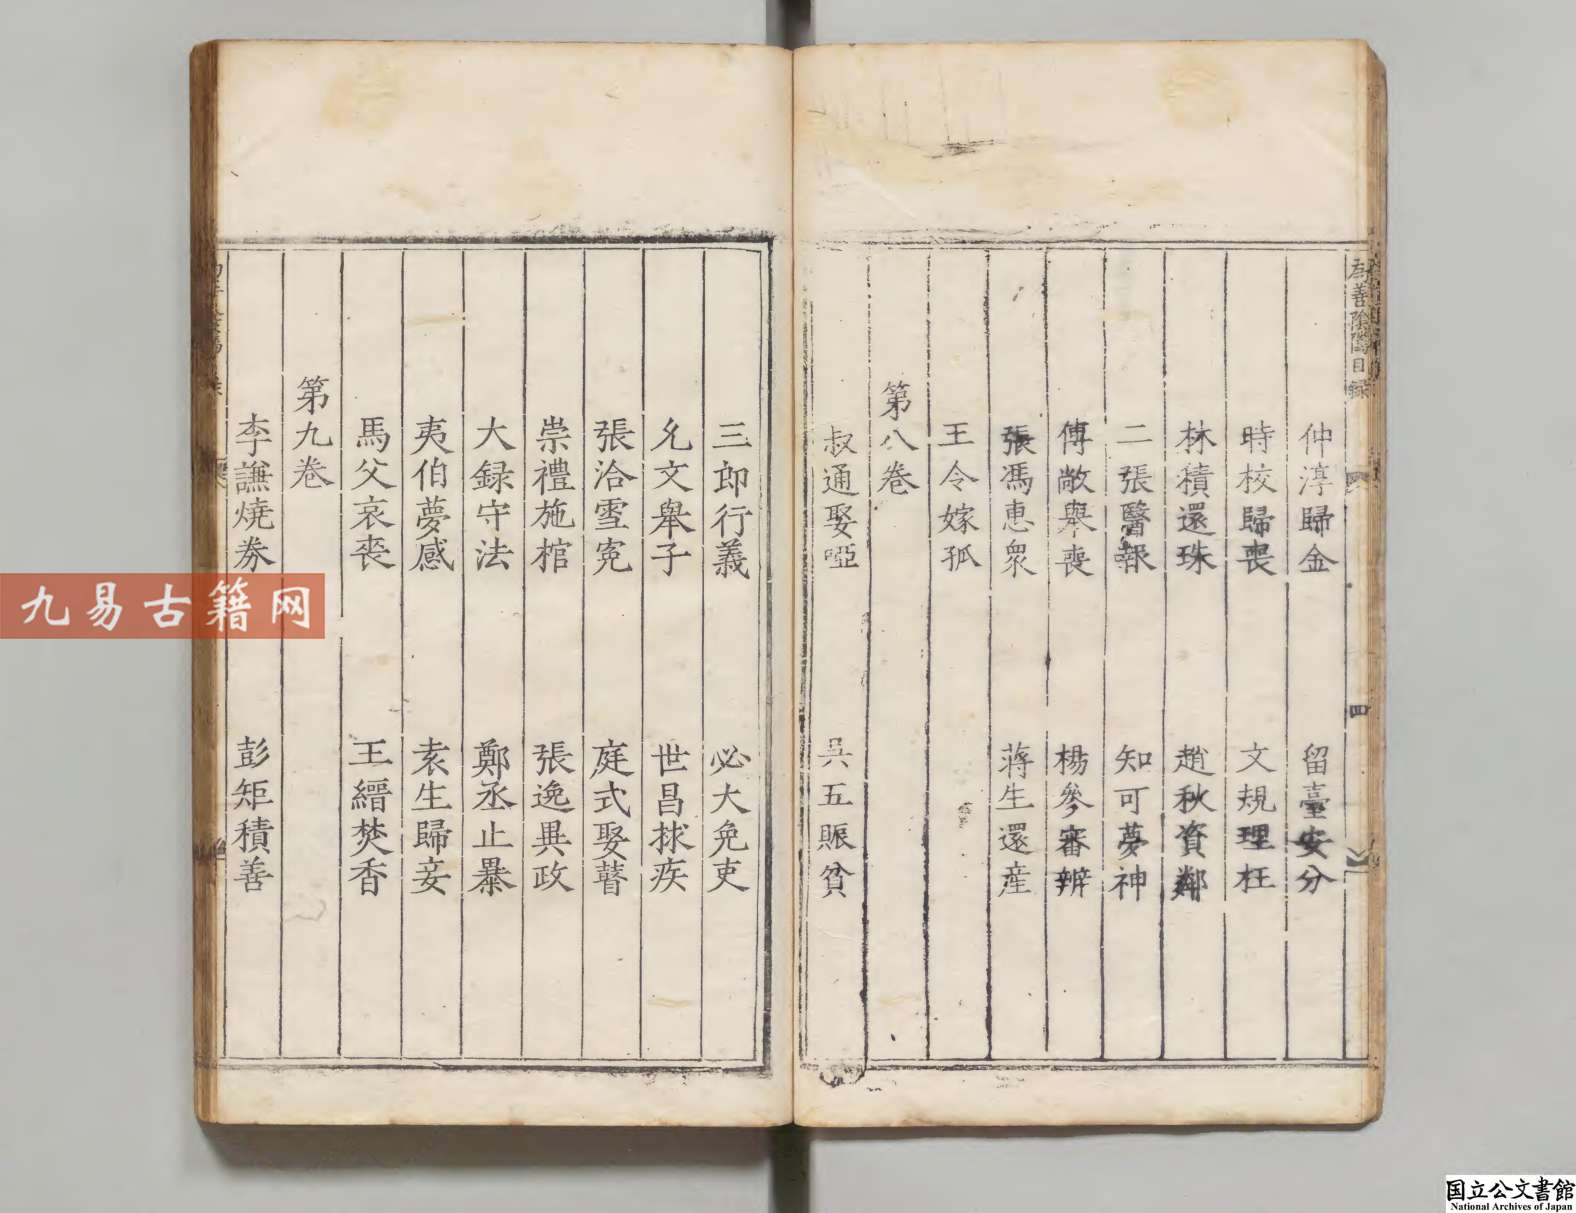 為善陰隲目録
四
仲淳歸金　留臺安分
時校歸喪　文規理枉
林積還珠　趙秋資鄰
二張醫報　知可夢神
傅敞舉喪　楊參審辨
張馮惠眾　蔣生還産
王令嫁孤
第八卷
叔通娶啞　吳五賑貧
三郎行義　必大免吏
允文舉子　世昌捄疾
張洽雪冤　庭式娶瞽
崇禮施棺　張逸異政
大録守法　鄭丞止暴
夷伯夢感　袁生歸妾
馬父哀喪　王縉焚香
第九卷
李謙燒券　彭矩積善
九易古籍网
国立公文書館
National Archives of Japan